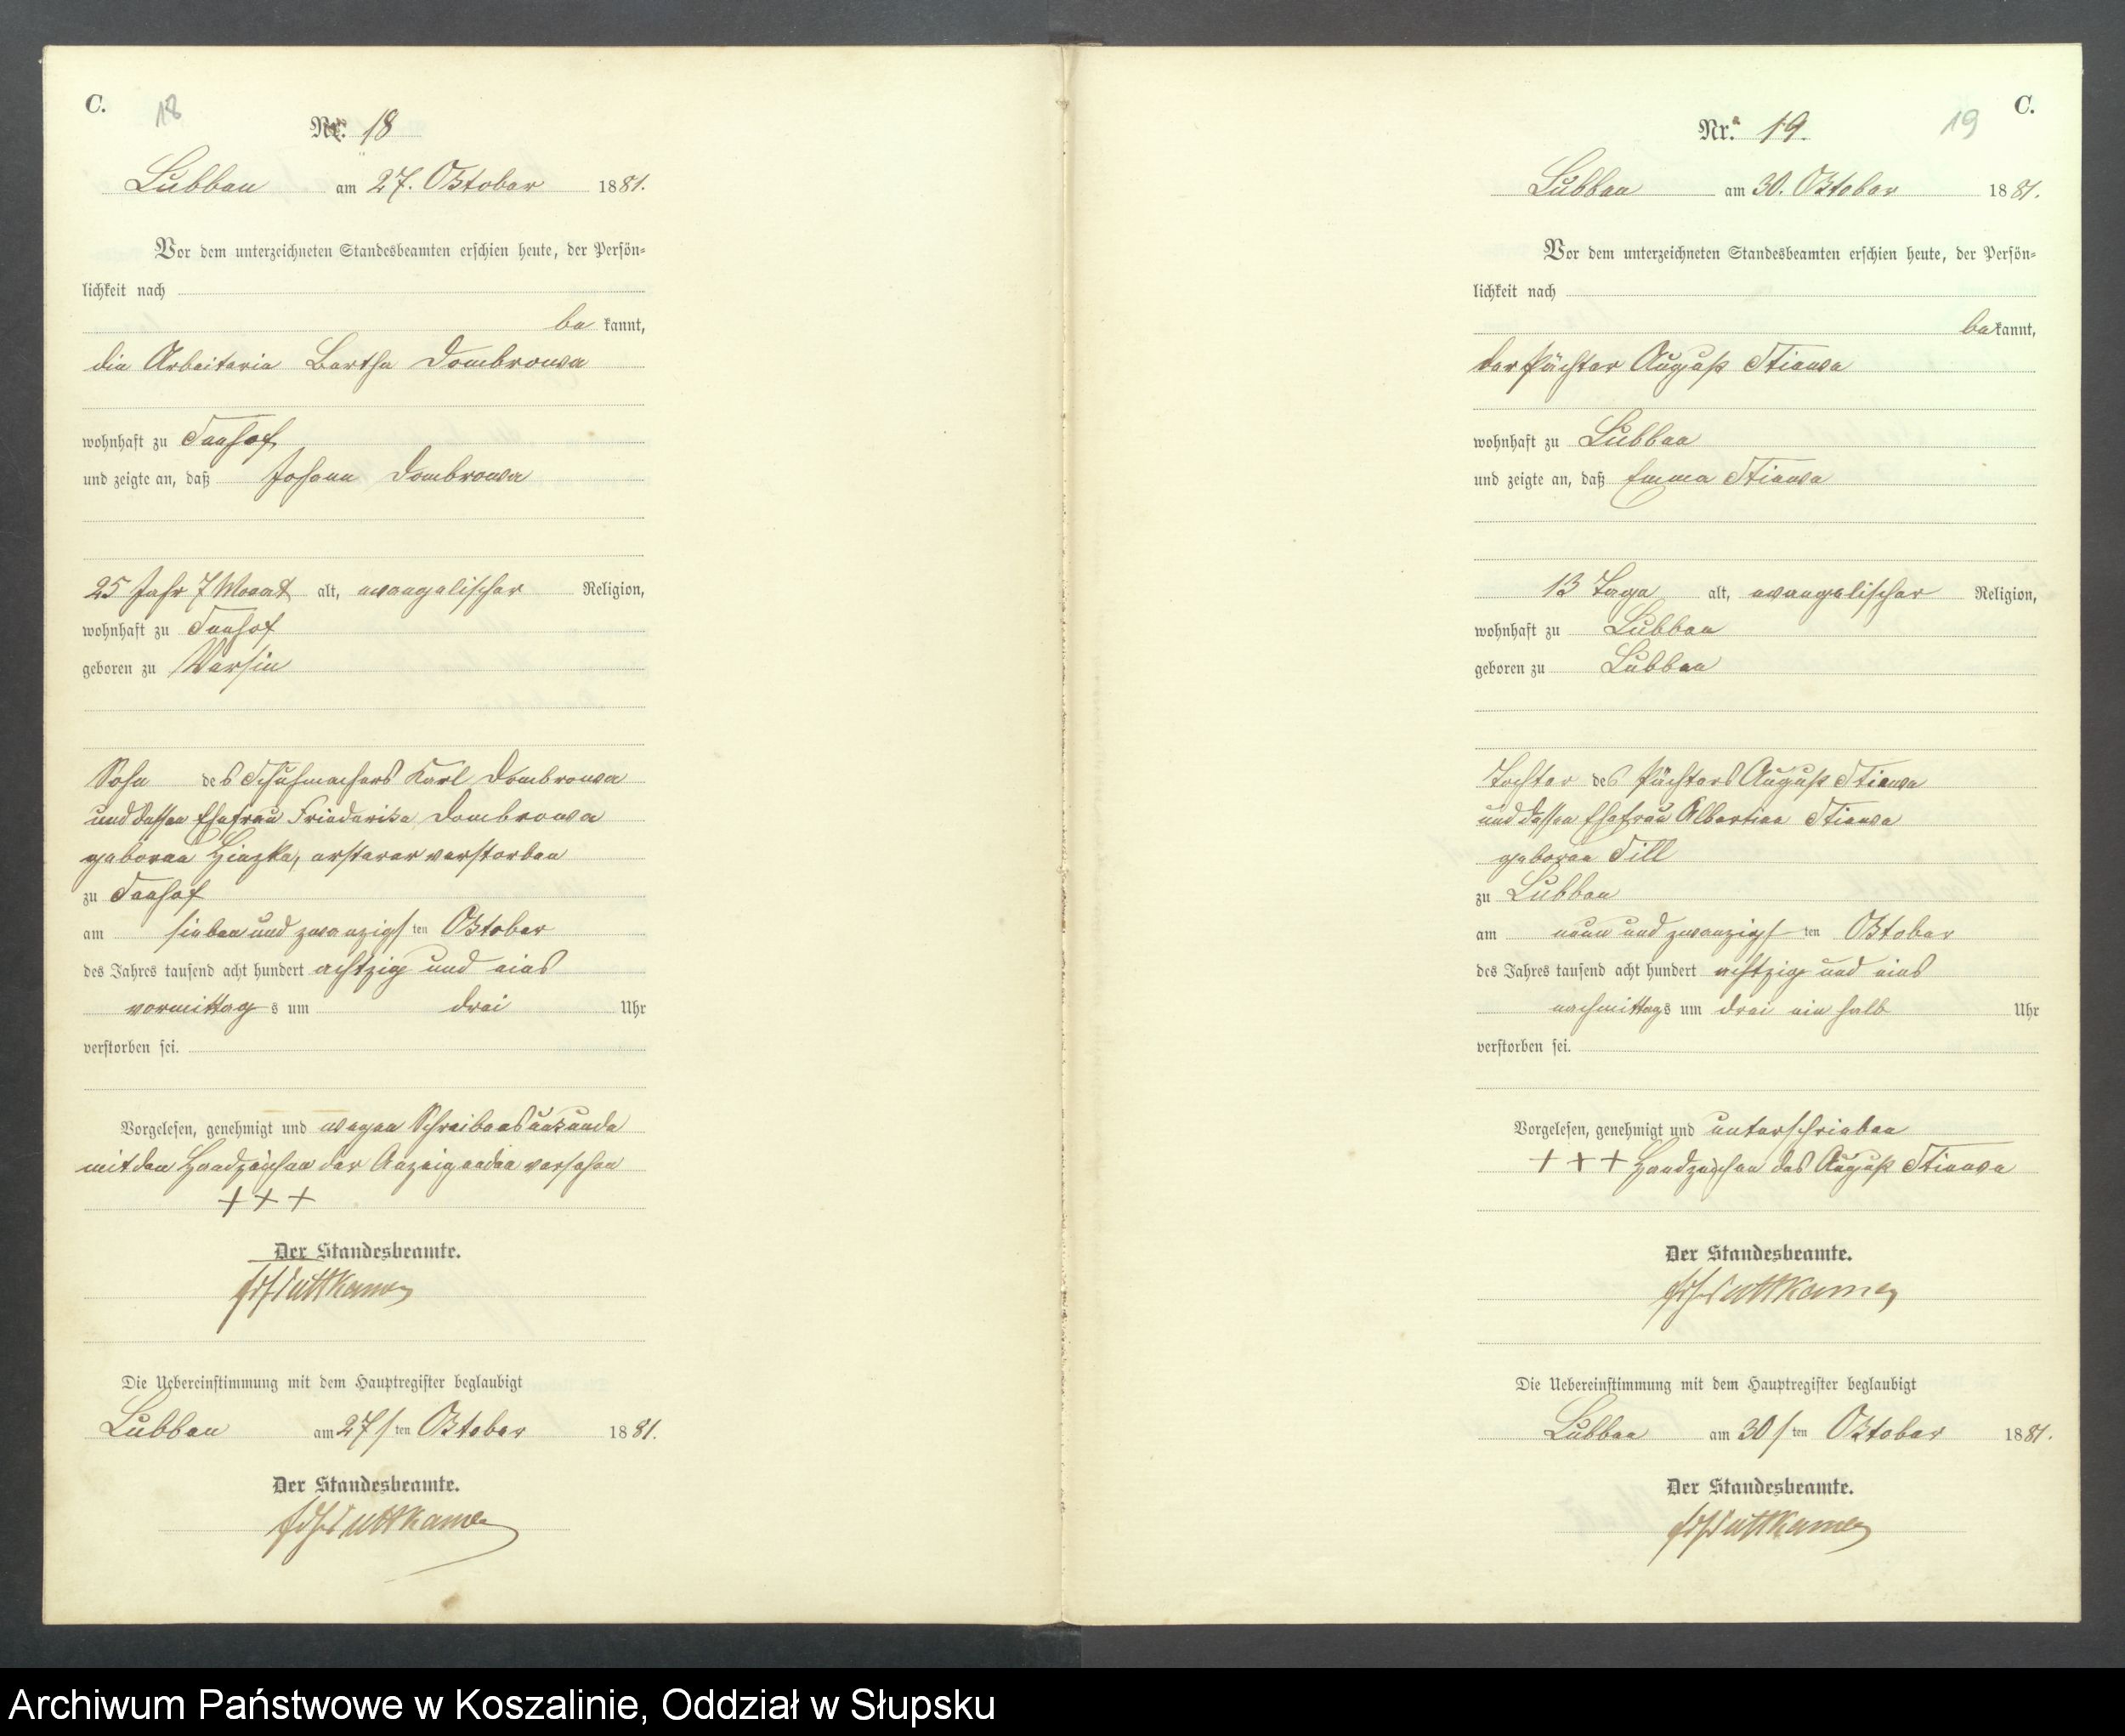 C.
18
Nr. 18
Lübben am 27. Oktober 1881.
Vor dem unterzeichneten Standesbeamten erschien heute, der Persön-
lichkeit nach
be kannt,
die Arbeiterin Bertha Dombrowa
wohnhaft zu
und zeigte an, daß Johann Dombrowa
25 Jahr 7 Monat alt, evangelischer Religion,
wohnhaft zu
geboren zu Varzin
Sohn des Schuhmachers Karl Dombrowa
und dessen Ehefrau Friederike Dombrowa
geborene ersterer verstorben
zu
am sieben und zwanzigsten Oktober
des Jahres tausend acht hundert achtzig und eins
vormittags um drei Uhr
verstorben sei.
Vorgelesen, genehmigt und wegen Schreibensunkunde
mit den Handzeichen der Anzeigenden versehen
+++
Der Standesbeamte.
Puttkamer
Die Uebereinstimmung mit dem Hauptregister beglaubigt
Lübben am 27sten Oktober 1881.
Der Standesbeamte.
Puttkamer
C.
19
Nr. 19.
Lübben am 30. Oktober 1881.
Vor dem unterzeichneten Standesbeamten erschien heute, der Persön-
lichkeit nach
bekannt,
der Pächter August Stiewe
wohnhaft zu Lübben
und zeigte an, daß Emma Stiewe
13 Tage alt, evangelischer Religion,
wohnhaft zu Lübben
geboren zu Lübben
Tochter des Pächters August Stiewe
und dessen Ehefrau Albertine Stiewe
geborene Till
zu Lübben
am neun und zwanzigsten Oktober
des Jahres tausend acht hundert achtzig und eins
nachmittags um drei ein halb Uhr
verstorben sei.
Vorgelesen, genehmigt und unterschrieben
+++ Handzeichen des August Stiewe
Der Standesbeamte.
Puttkamer
Die Uebereinstimmung mit dem Hauptregister beglaubigt
Lübben am 30sten Oktober 1881.
Der Standesbeamte.
Puttkamer
Archiwum Państwowe w Koszalinie, Oddział w Słupsku